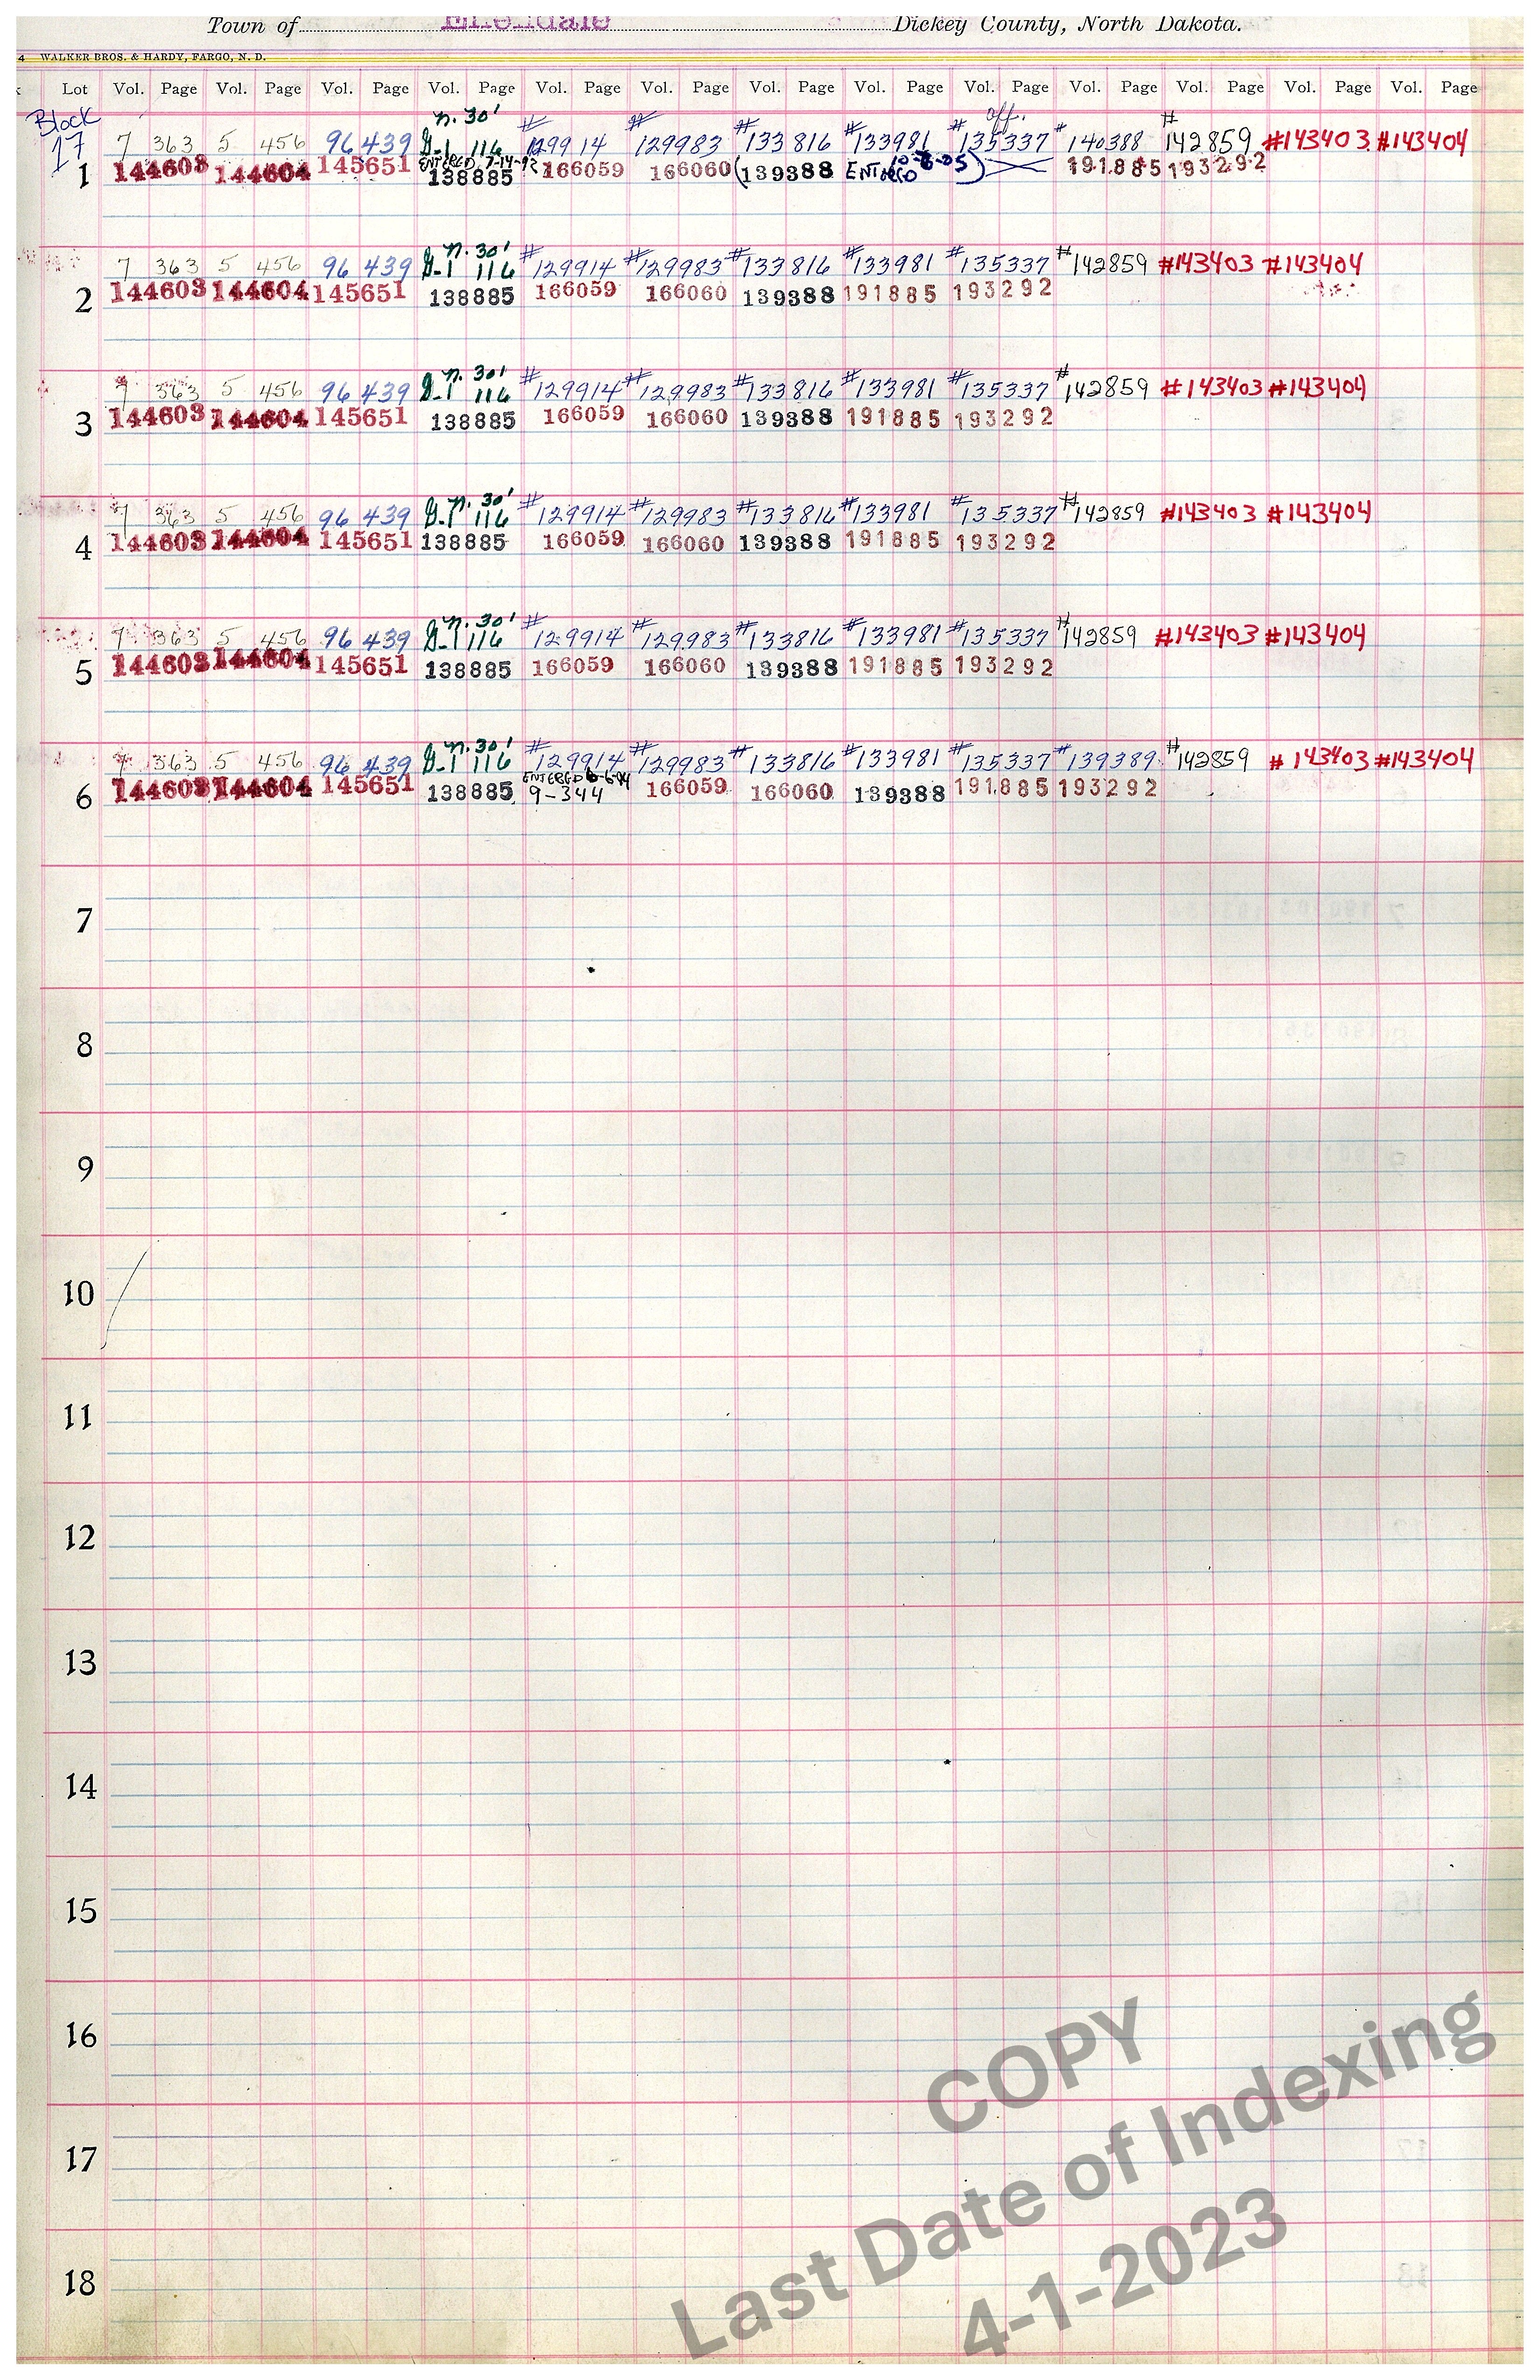 Town of Dickey County, North Dakota.
4 WALKER BROS. & HARDY, FARGO, N. D.
Lot Vol. Page Vol. Page Vol. Page Vol. Page Vol. Page Vol. Page Vol. Page Vol. Page Vol. Page Vol. Page Vol. Page Vol. Page Vol. Page
Block n. 30' off.
17 7 363 5 456 96 439 G-1 116 #129914 #129983 #133816 #133981 #135337 #140388 #142859 #143403 #143404
ENTERED 7-14-92 10-6-05
1 144603 144604 145651 138885 166059 166060 (139388 ENTERED) 191885 193292
n. 30'
7 363 5 456 96 439 G-1 116 #129914 #129983 #133816 #133981 #135337 #142859 #143403 #143404
2 144603 144604 145651 138885 166059 166060 139388 191885 193292
n. 30'
7 363 5 456 96 439 G-1 116 #129914 #129983 #133816 #133981 #135337 #142859 #143403 #143404
3 144603 144604 145651 138885 166059 166060 139388 191885 193292
n. 30'
7 363 5 456 96 439 G-1 116 #129914 #129983 #133816 #133981 #135337 #142859 #143403 #143404
4 144603 144604 145651 138885 166059 166060 139388 191885 193292
n. 30'
7 363 5 456 96 439 G-1 116 #129914 #129983 #133816 #133981 #135337 #142859 #143403 #143404
5 144603 144604 145651 138885 166059 166060 139388 191885 193292
n. 30'
7 363 5 456 96 439 G-1 116 #129914 #129983 #133816 #133981 #135337 #139389 #142859 #143403 #143404
ENTERED 6-6-04
6 144603 144604 145651 138885 9-344 166059 166060 139388 191885 193292
7
8
9
10
11
12
13
14
15
16
17
18
COPY
Last Date of Indexing
4-1-2023